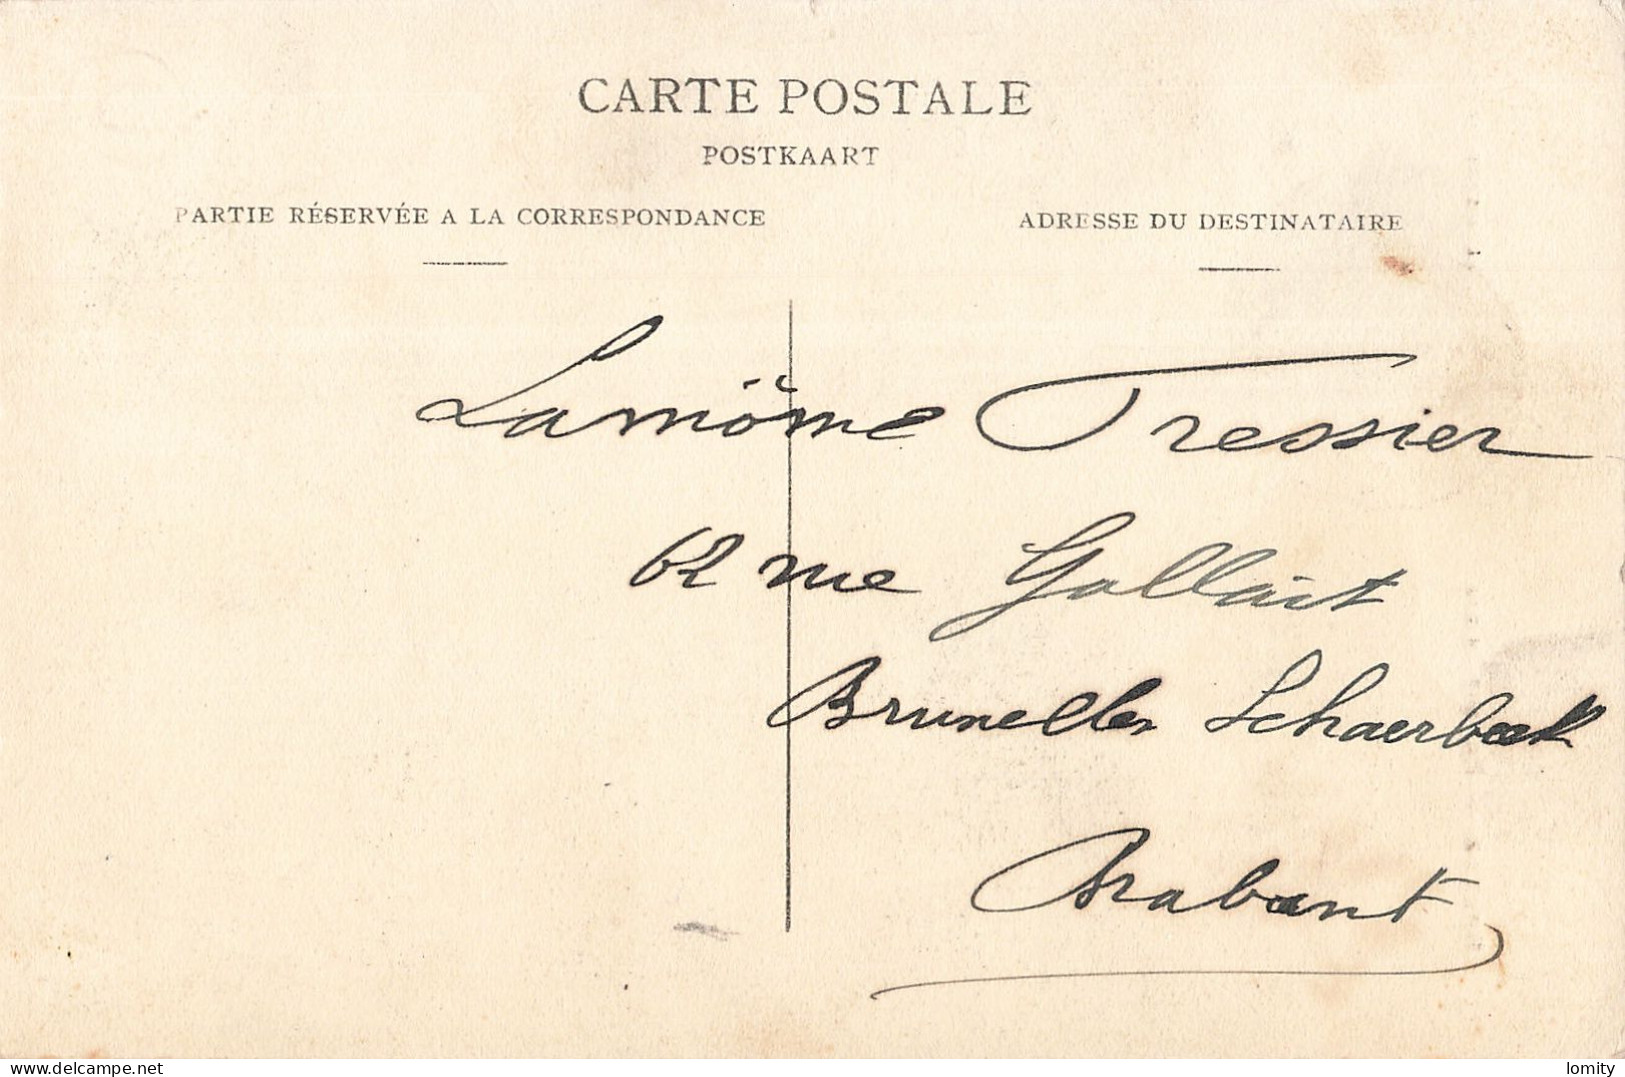 CARTE POSTALE
POSTKAART
PARTIE RÉSERVÉE A LA CORRESPONDANCE
ADRESSE DU DESTINATAIRE
Lamôme Tressier
62 rue Gallait
Bruxelles Schaerbeek
Brabant
delcampe.net
lomity